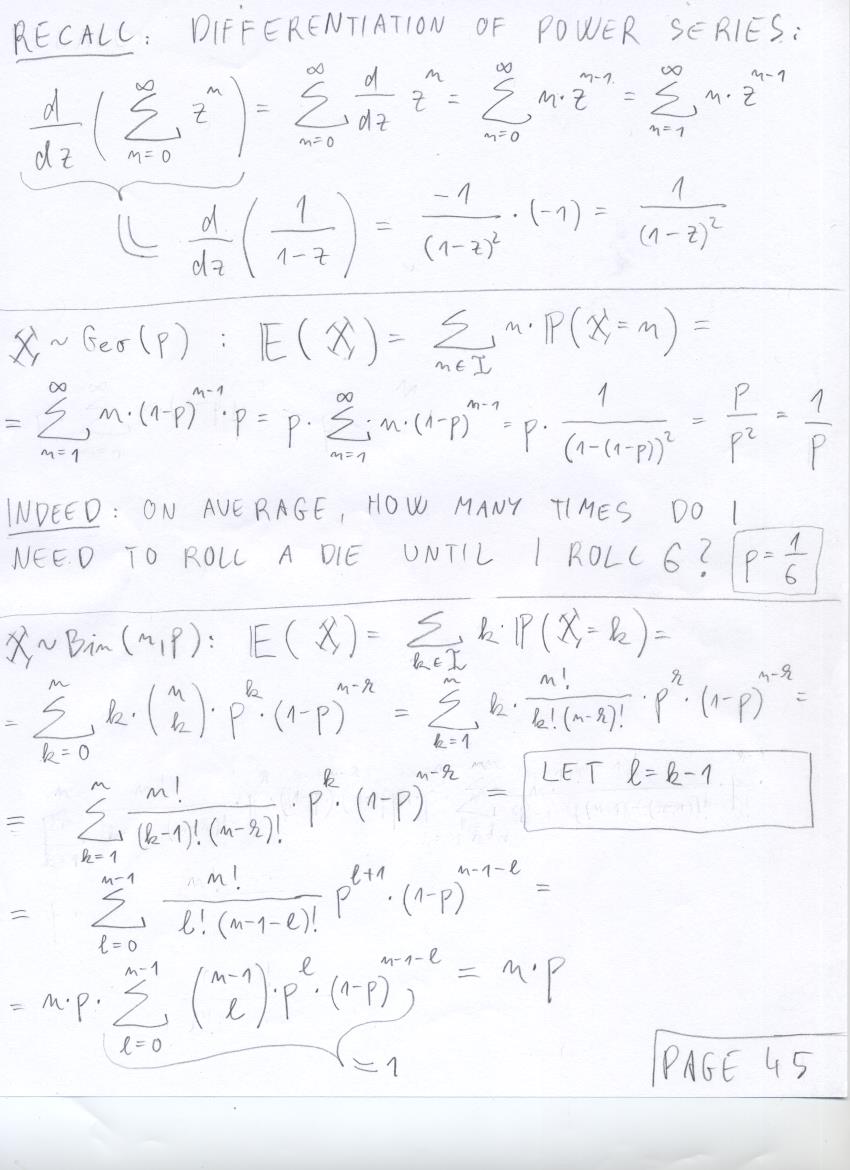 RECALL: DIFFERENTIATION OF POWER SERIES:
d/dz ( ∑_{n=0}^{∞} z^n ) = ∑_{n=0}^{∞} d/dz z^n = ∑_{n=0}^{∞} n·z^{n-1} = ∑_{n=1}^{∞} n·z^{n-1}
|| d/dz ( 1/(1-z) ) = -1/(1-z)^2 · (-1) = 1/(1-z)^2
X ~ Geo(p) : E(X) = ∑_{n∈I} n·P(X=n) =
= ∑_{n=1}^{∞} n·(1-p)^{n-1}·p = p·∑_{n=1}^{∞} n·(1-p)^{n-1} = p· 1/(1-(1-p))^2 = p/p^2 = 1/p
INDEED: ON AVERAGE, HOW MANY TIMES DO I
NEED TO ROLL A DIE UNTIL I ROLL 6? p = 1/6
X ~ Bin(n,p): E(X) = ∑_{k∈I} k·P(X=k) =
= ∑_{k=0}^{n} k·(n k)·p^k·(1-p)^{n-k} = ∑_{k=1}^{n} k· n!/(k!(n-k)!) ·p^k·(1-p)^{n-k} =
= ∑_{k=1}^{n} n!/((k-1)!(n-k)!) ·p^k·(1-p)^{n-k} = LET l=k-1
= ∑_{l=0}^{n-1} n!/(l!(n-1-l)!) p^{l+1}·(1-p)^{n-1-l} =
= n·p·∑_{l=0}^{n-1} (n-1 l)·p^l·(1-p)^{n-1-l} = n·p
=1
PAGE 45